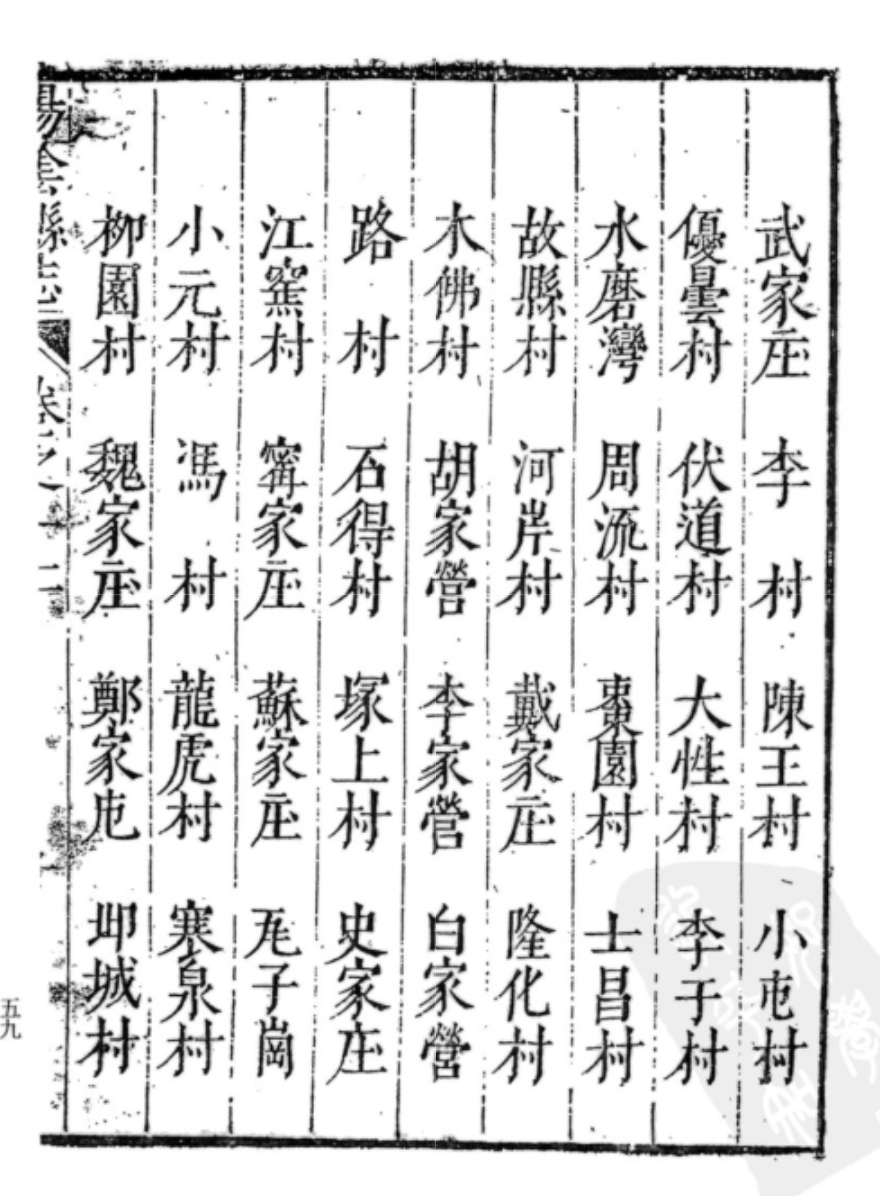 武家庄 李村 陳王村 小屯村
優曇村 伏道村 大性村 李于村
水磨灣 周流村 棗園村 士昌村
故縣村 河岸村 戴家庄 隆化村
木佛村 胡家營 李家營 白家營
路村 石得村 塚上村 史家庄
江窰村 甯家庄 蘇家庄 瓦子崗
小元村 馮村 龍虎村 寒泉村
柳園村 魏家庄 鄭家屯 邶城村
湯陰縣志 卷之二
五九